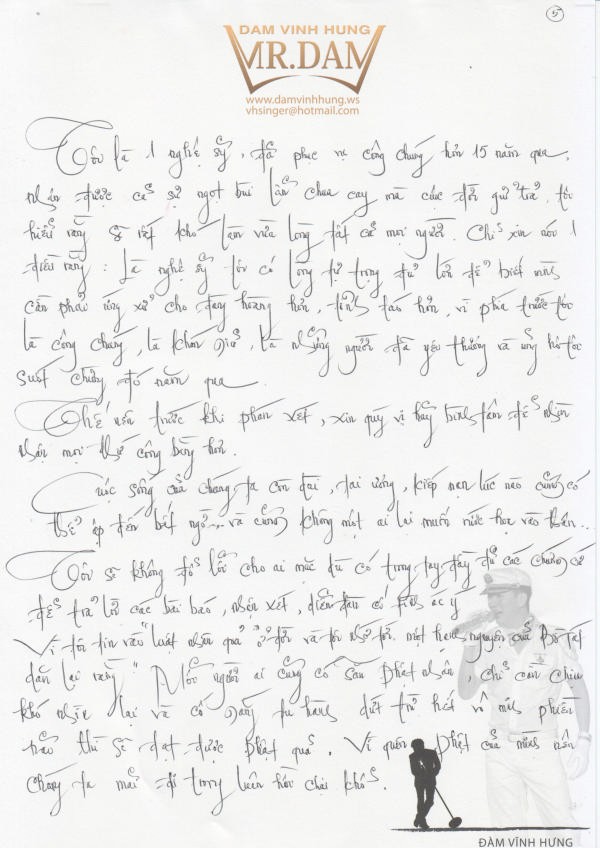 5
DAM VINH HUNG
MR.DAM
www.damvinhhung.ws
vhsinger@hotmail.com
Tôi là 1 nghệ sỹ, đã phục vụ công chúng hơn 15 năm qua,
nhận được cả sự ngọt bùi lẫn chua cay mà cuộc đời gửi trả, tôi
hiểu rằng sẽ rất khó làm vừa lòng tất cả mọi người. Chỉ xin nói 1
điều rằng: Là nghệ sỹ tôi có lòng tự trọng đủ lớn để biết mình
cần phải ứng xử cho đàng hoàng hơn, tỉnh táo hơn, vì phía trước tôi
là công chúng, là khán giả, là những người đã yêu thương và ủng hộ tôi
suốt chừng đó năm qua
Thế nên trước khi phán xét, xin quý vị hãy bình tâm để nhìn
nhận mọi thứ công bằng hơn.
Cuộc sống của chúng ta còn dài, tai ương, kiếp nạn lúc nào cũng có
thể ập đến bất ngờ.. và cũng không một ai lại muốn rước họa vào thân..
Tôi sẽ không đổ lỗi cho ai mặc dù có trong tay đầy đủ các chứng cứ
để trả lời các bài báo, nhận xét, diễn đàn có tính ác ý
Vì tôi tin vào "luật nhân quả" ở đời và tôi nhớ tới một hạnh nguyện của Bồ Tát
dặn lại rằng "Mỗi người ai cũng có sẵn Phật nhân, chỉ cần chịu
khó nhìn lại và cố gắng tu hành dứt trừ hết vô minh phiền
não thì sẽ đạt được Phật quả. Vì quên Phật của mình nên
chúng ta mãi đi trong luân hồi chịu khổ.
ĐÀM VĨNH HƯNG